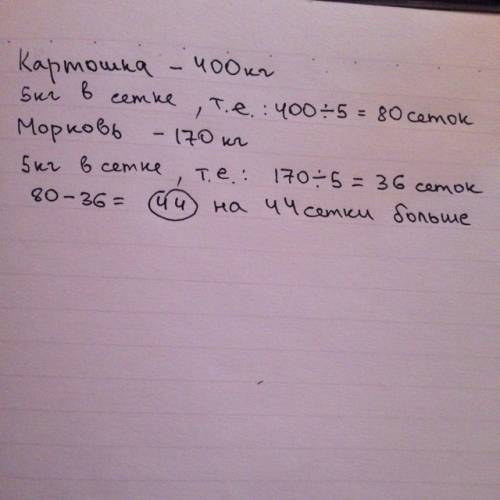 Картошка - 400кг
5кг в сетке, т.е.: 400÷5 = 80 сеток
Морковь - 170 кг
5кг в сетке, т.е.: 170÷5 = 36 сеток
80-36= 44 на 44 сетки больше